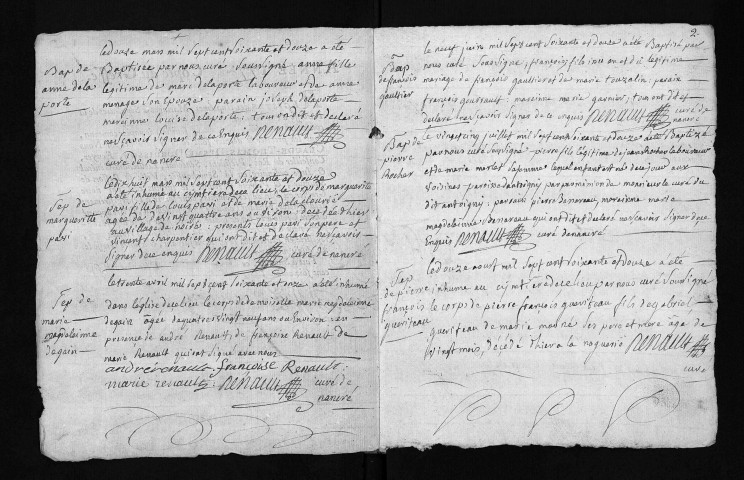 Bap de
anne dela
porte
le douze mars mil sept cent soixante et douze a été
Baptisée par nous curé soussigné, anne fille
legitime de marc delaporte laboureur et de anne
menage son Epouze, parain joseph delaporte
mareinne louise delaporte, tous ont dit et declaré
ne sçavoir signer de ce Enquis Renault
curé de nancré
Sep de
margueritte
pavi
le dixhuit mars mil sept cent soixante et douze
a été inhumé au cymtiere de ce lieu, le corps de margueritte
pavi fille de louis pavi et de marie
agée de vingt quatre ans ou Environ, decedée d'hier
au village de ; presents louis pavi son pere et
vincent charpentier qui ont dit et declaré ne sçavoir
signer de ce enquis Renault curé de nancré
Sep de
marie
magdelainne
degain
le trente avril mil sept cent soixante et onze a été inhumé
dans leglise de ce lieu le corps de damoiselle marie magdelainne
degain agée de quatre vingt neuf ans ou Environ en
presence de andré Renault, de françoise Renault de
marie Renault qui ont signé avec nous
andré renault françoise Renault
marie renault Renault curé de
nancré
2
Bap
de françois
gaultier
le neuf juin mil sept cent soixante et douze a été Baptisé par
nous curé soussigné, françois fils issu en et du legitime
mariage de françois gaultier et de marie touzalin; parain
françois guerrault, mareinne marie garnier; tous ont dit et
declaré ne sçavoir signer de ce enquis Renault curé de
nancré
Bap de
pierre
Rocher
le vingt cinq juillet mil sept cent soixante et douze a été Baptizé
par nous curé soussigné pierre fils legitime de jean Rocher laboureur
et de marie martet sa femme lequel enfant est né de ce jour aux
voisines parroisse dantogny par promission de monsieur le curé du
dit antogny; parrain pierre demareau, mareinne marie
magdelainne demareau qui ont dit et declaré ne sçavoir signer de ce
enquis Renault curé de nancré
Sep
de pierre
françois
queriteau
le douze aoust mil sept cent soixante et douze a été
inhumé au cymtiere de ce lieu par nous curé soussigné
le corps de pierre françois queriteau fils de gabriel
queriteau de marie ses pere et mere age de
vingt mois, décédé d'hier a la noguerie Renault
curé